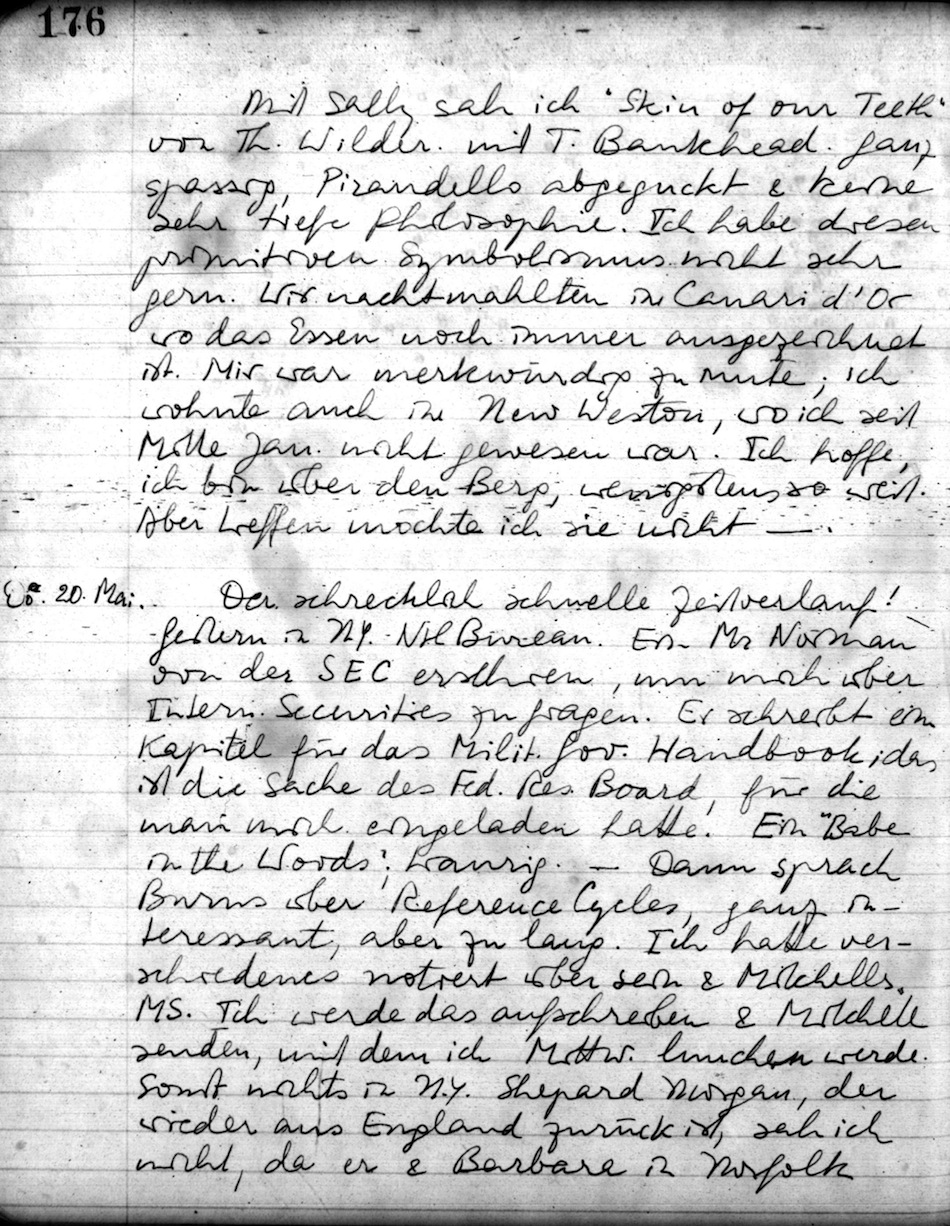 176
Mit Sally sah ich "Skin of our Teeth"
von Th. Wilder. mit T. Bankhead. Ganz
spassig, Pirandello abgeguckt & keine
sehr tiefe Philosophie. Ich habe diesen
primitiven Symbolismus nicht sehr
gern. Wir nachtmahlten im Canari d'Or
wo das Essen noch immer ausgezeichnet
ist. Mir war merkwürdig zu mute; ich
wohnte auch im New Weston, wo ich seit
Mitte Jan. nicht gewesen war. Ich hoffe,
ich bin über den Berg, wenigstens so weit.
Aber treffen möchte ich sie nicht —.
Do. 20. Mai. Der schrecklich schnelle Zeitverlauf!
Gestern in N.Y. Ntl Bureau. Ein Mr Norman
von der SEC erschien, um mich über
Intern. Securities zu fragen. Er schreibt ein
Kapitel für das Milit. Gov. Handbook; das
ist die Sache des Fed. Res. Board, für die
man mich eingeladen hatte. Ein "Babe
in the Woods"; traurig. — Dann sprach
Burns über Reference Cycles, ganz in-
teressant, aber zu lang. Ich hatte ver-
schiedenes notiert über sein & Mitchells
MS. Ich werde das aufschreiben & Mitchell
senden, mit dem ich Mittw. lunchen werde.
Sonst nichts in N.Y. Shepard Morgan, der
wieder aus England zurück ist, sah ich
nicht, da er & Barbara in Norfolk